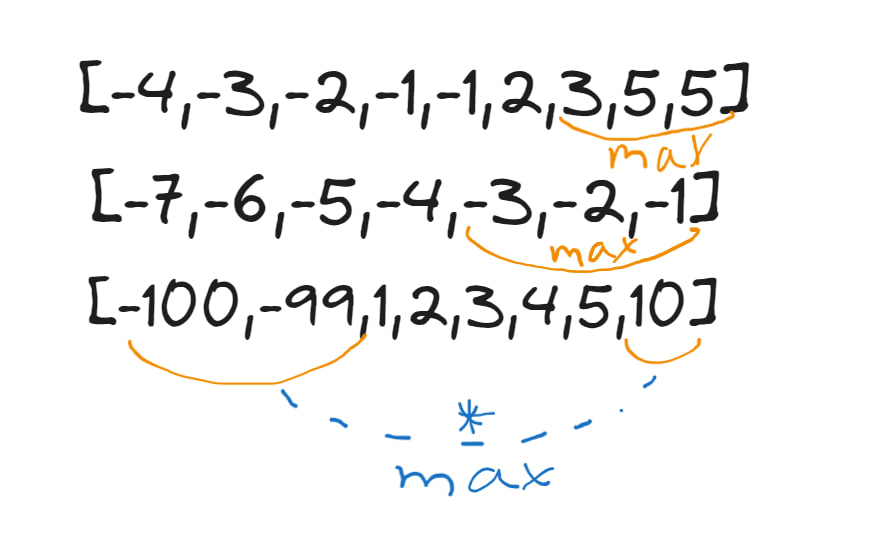 [-4,-3,-2,-1,-1,2,3,5,5]
max
[-7,-6,-5,-4,-3,-2,-1]
max
[-100,-99,1,2,3,4,5,10]
*
max